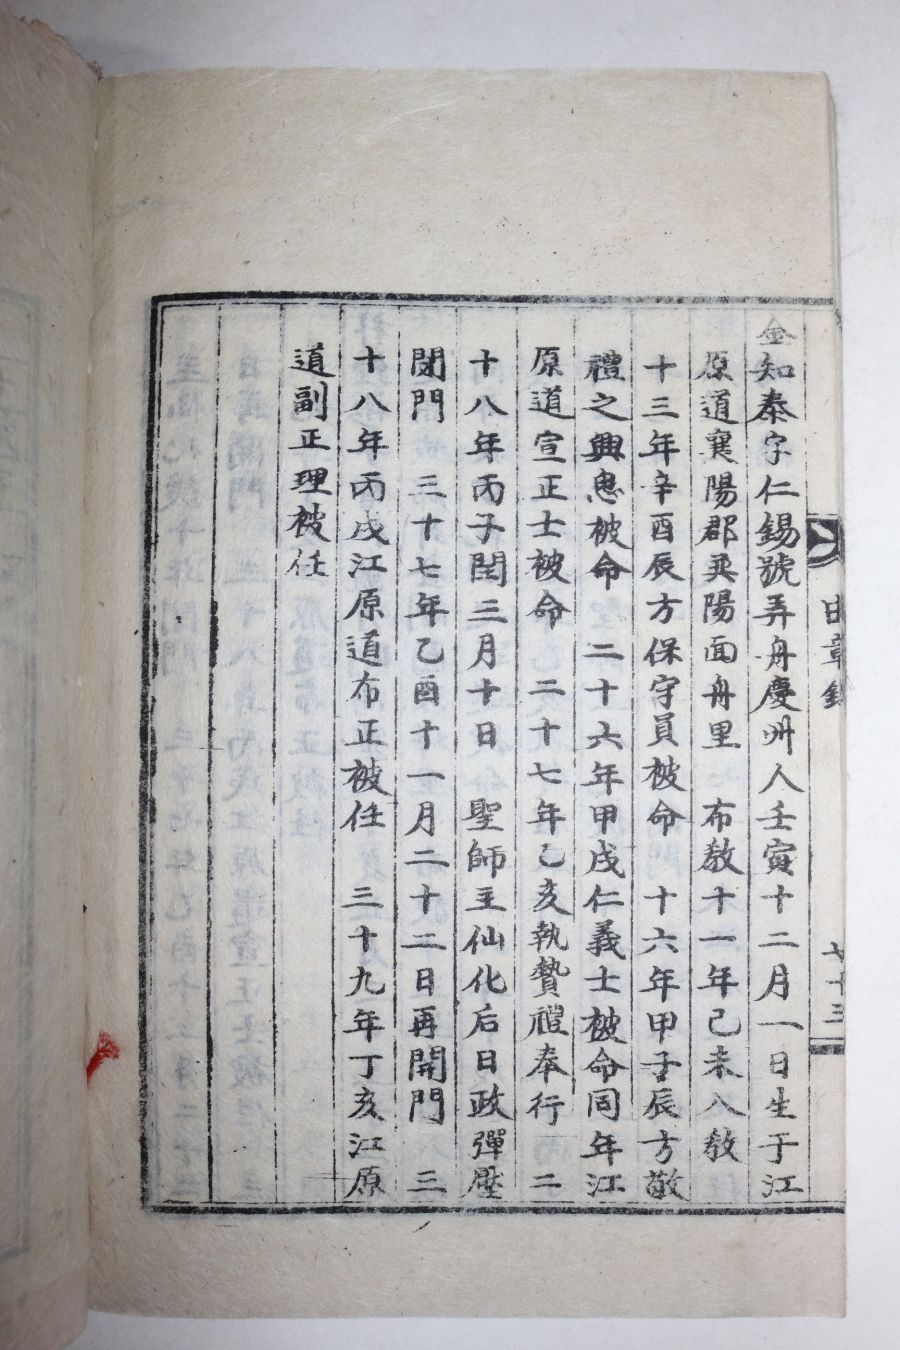 金知泰字仁錫號弄舟慶州人壬寅十二月一日生于江
原道襄陽郡巽陽面舟里 布教十一年己未入教
十三年辛酉辰方保守員被命 十六年甲子辰方敬
禮之興思被命 二十六年甲戌仁義士被命同年江
原道宣正士被命 二十七年乙亥執贄禮奉行 二
十八年丙子閏三月十日 聖師主仙化后日政彈壓
閉門 三十七年乙酉十一月二十二日再開門 三
十八年丙戌江原道布正被任 三十九年丁亥江原
道副正理被任
章錄
七十三